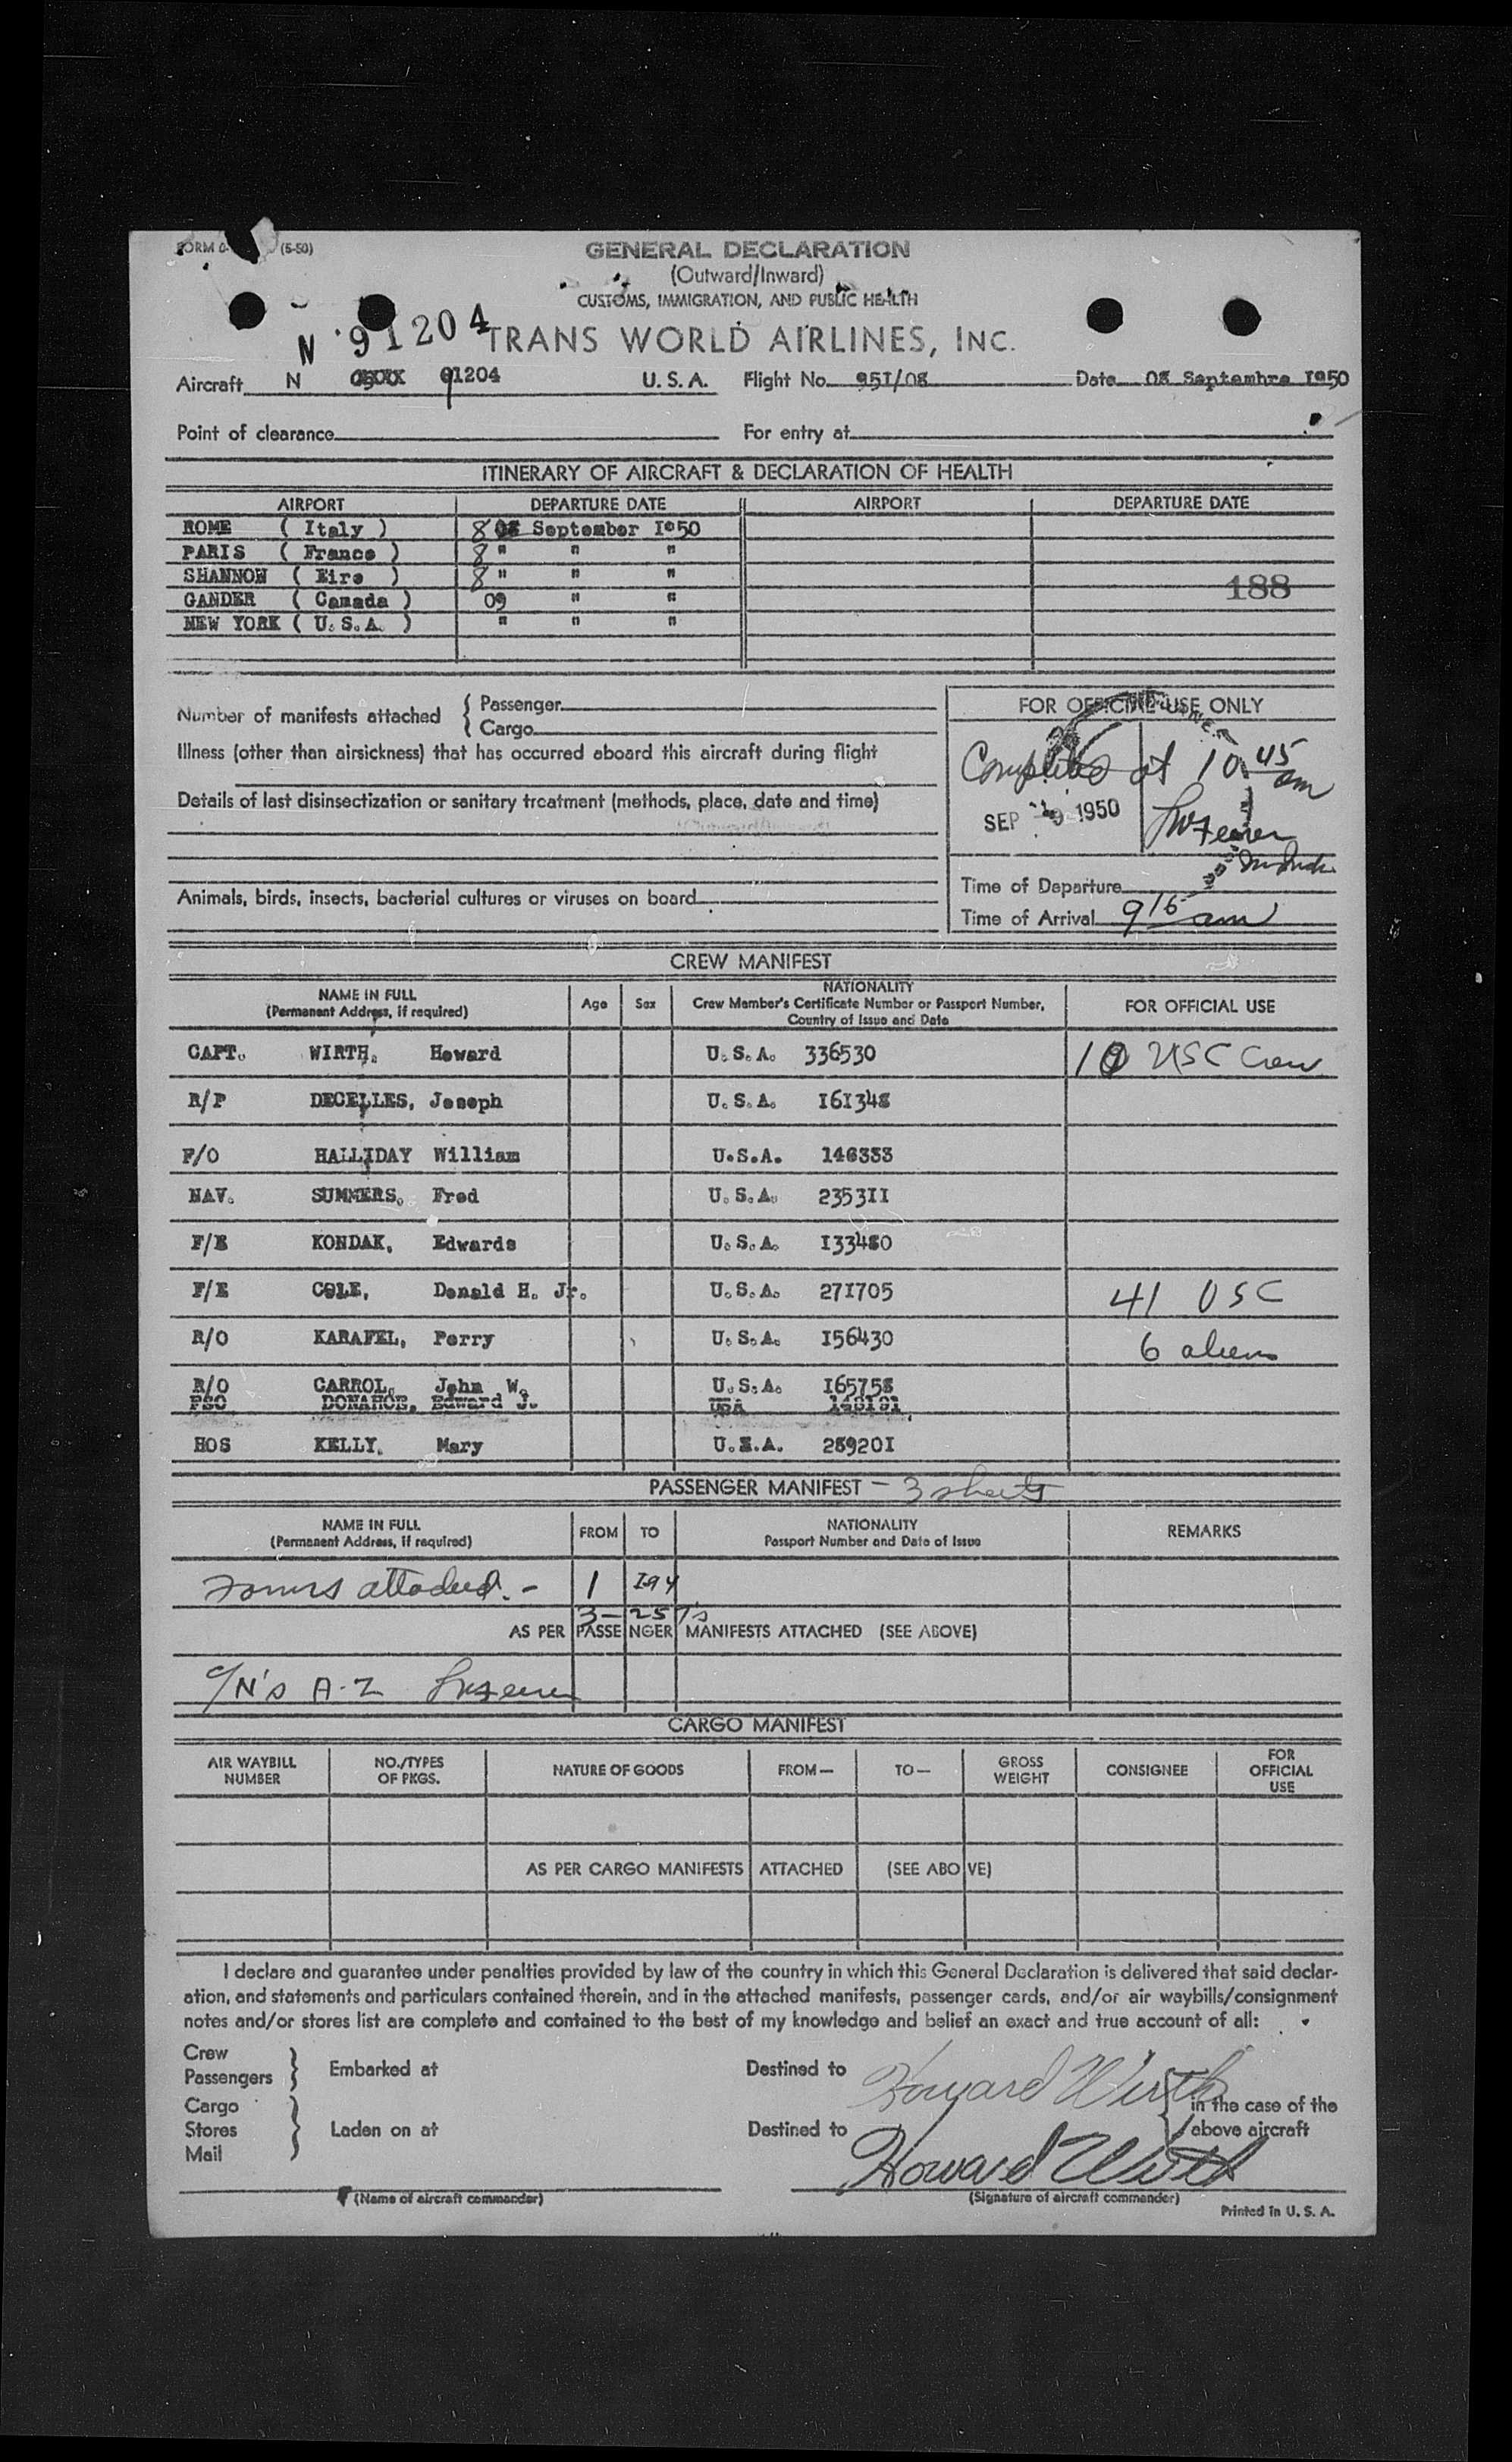 FORM 0- (5-50)
GENERAL DECLARATION
(Outward/Inward)
CUSTOMS, IMMIGRATION, AND PUBLIC HEALTH
N 91204
TRANS WORLD AIRLINES, INC.
Aircraft N 91204 U. S. A. Flight No. 951/08 Date 08 Septembre 1950
Point of clearance For entry at
ITINERARY OF AIRCRAFT & DECLARATION OF HEALTH
AIRPORT DEPARTURE DATE AIRPORT DEPARTURE DATE
ROME ( Italy ) 8 September I950
PARIS ( France ) 8 " " "
SHANNON ( Eire ) 8 " " "
188
GANDER ( Canada ) 09 " "
NEW YORK ( U.S.A. ) " " "
Number of manifests attached { Passenger
Cargo
FOR OFFICIAL USE ONLY
Illness (other than airsickness) that has occurred aboard this aircraft during flight
Completed at 10 45 am
Details of last disinsectization or sanitary treatment (methods, place, date and time)
SEP 9 1950
Animals, birds, insects, bacterial cultures or viruses on board
Time of Departure
Time of Arrival 9 15 am
CREW MANIFEST
NAME IN FULL (Permanent Address, if required) Age Sex NATIONALITY Crew Member's Certificate Number or Passport Number, Country of Issue and Date FOR OFFICIAL USE
CAPT. WIRTH, Howard U.S.A. 336530 10 USC Crew
R/P DECELLES, Joseph U.S.A. I6I348
F/O HALLIDAY William U.S.A. 146333
NAV. SUMMERS, Fred U.S.A. 2353II
F/E KONDAK, Edwards U.S.A. I33480
F/E COLE, Donald H. Jr. U.S.A. 27I705 41 USC
R/O KARAFEL, Perry U.S.A. I56430 6 aliens
R/O CARROL, John W. U.S.A. I65758
FSO DONAHOE, Edward J. USA 148191
HOS KELLY, Mary U.S.A. 28920I
PASSENGER MANIFEST - 3 sheets
NAME IN FULL (Permanent Address, if required) FROM TO NATIONALITY Passport Number and Date of Issue REMARKS
Forms attached. - 1 I94
3 - 257's
AS PER PASSENGER MANIFESTS ATTACHED (SEE ABOVE)
C/N's A-Z
CARGO MANIFEST
AIR WAYBILL NUMBER NO./TYPES OF PKGS. NATURE OF GOODS FROM— TO— GROSS WEIGHT CONSIGNEE FOR OFFICIAL USE
AS PER CARGO MANIFESTS ATTACHED (SEE ABOVE)
I declare and guarantee under penalties provided by law of the country in which this General Declaration is delivered that said declar-
ation, and statements and particulars contained therein, and in the attached manifests, passenger cards, and/or air waybills/consignment
notes and/or stores list are complete and contained to the best of my knowledge and belief an exact and true account of all:
Crew
Passengers } Embarked at Destined to Howard Wirth
Cargo in the case of the
Stores } Laden on at Destined to above aircraft
Mail
Howard Wirth
(Name of aircraft commander) (Signature of aircraft commander)
Printed in U. S. A.